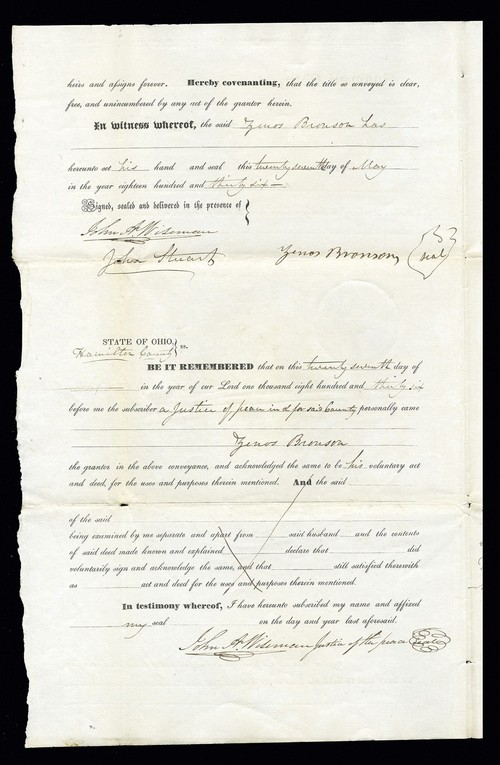 heirs and assigns forever. Hereby covenanting, that the title so conveyed is clear,
free, and unincumbered by any act of the grantor herein.
In witness whereof, the said Zenos Bronson has
hereunto set his hand and seal this twenty seventh day of May
in the year eighteen hundred and thirty six
Signed, sealed and delivered in the presence of
John A. Wiseman
John Stuart
Zenos Bronson seal
STATE OF OHIO,
Hamilton County ss.
BE IT REMEMBERED that on this twenty seventh day of
in the year of our Lord one thousand eight hundred and thirty six
before me the subscriber a Justice of peace in & for said County personally came
Zenos Bronson
the grantor in the above conveyance, and acknowledged the same to be his voluntary act
and deed, for the uses and purposes therein mentioned. And the said
of the said
being examined by me separate and apart from said husband and the contents
of said deed made known and explained declare that did
voluntarily sign and acknowledge the same, and that still satisfied therewith
as act and deed for the uses and purposes therein mentioned.
In testimony whereof, I have hereunto subscribed my name and affixed
my seal on the day and year last aforesaid.
John A. Wiseman Justice of the peace seal